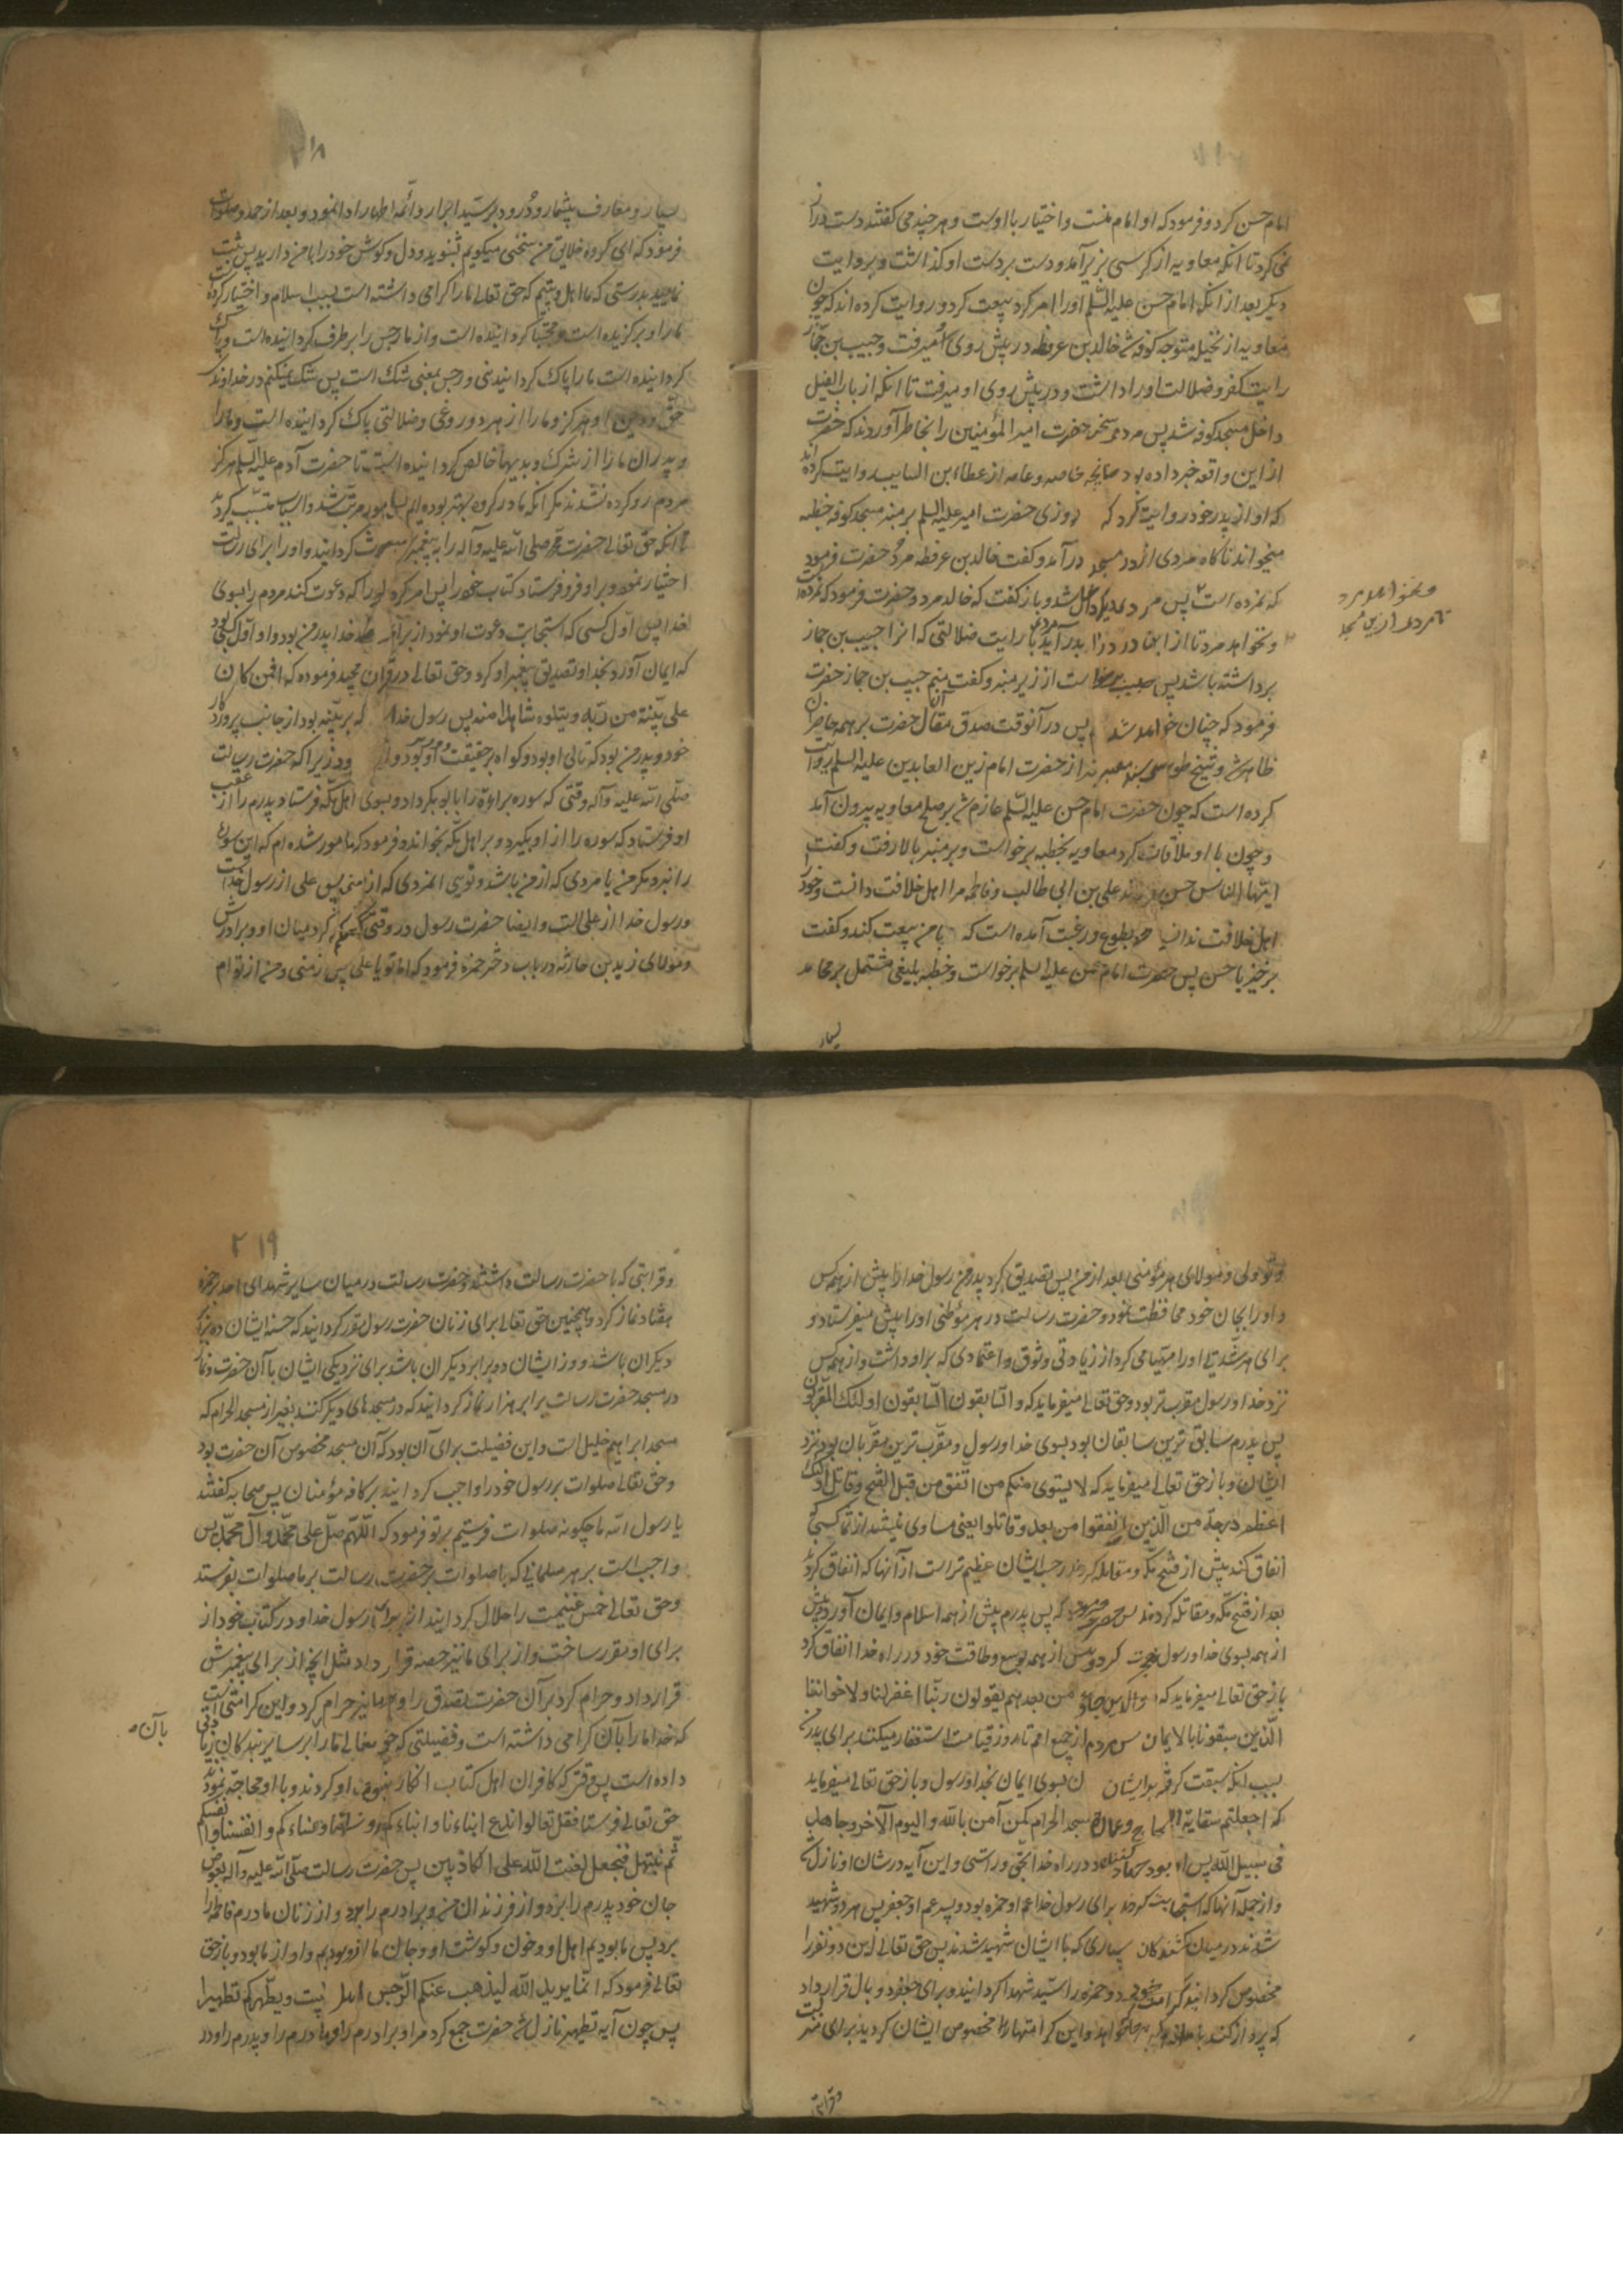 امام حسن کرد و فرمود که او امام منست و اختیار با اوست و هر چند می گفتند دست دراز
نمی کرد تا آنکه معاویه از کرسی بزیر آمد و دست بر دست او گذاشت و بروایت
دیگر بعد از آنکه امام حسن علیه السلام او را امر کرد بیعت کرد و روایت کرده اند که چون
معاویه از نخیله متوجه کوفه شد خالد بن عرفطه در پیش روی او میرفت و حبیب بن جماز
رایت کفر و ضلالت او را داشت و در پیش روی او میرفت تا آنکه از باب الفیل
داخل مسجد کوفه شد پس مردم سخن حضرت امیر المؤمنین را بخاطر آوردند که حضرت
از این واقعه خبر داده بود چنانچه خاصه و عامه از عطاء بن السایب روایت کرده اند
که او از پدر خود روایت کرد که روزی حضرت امیر علیه السلام بر منبر مسجد کوفه خطبه
میخواند ناگاه مردی از در مسجد درآمد و گفت خالد بن عرفطه مرد حضرت فرمود
که نمرده است پس مرد دیگر داخل شد و باز گفت که خالد مرد و حضرت فرمود که نمرده است
و نخواهد مرد تا از این در درآید با رایت ضلالتی که آنرا حبیب بن جماز
برداشته باشد پس حبیب برخاست از زیر منبر و گفت منم حبیب بن جماز حضرت
فرمود که چنان خواهد شد پس در آنوقت صدق مقال آن حضرت بر همه حاضران
ظاهر شد و شیخ طوسی بسند معتبر از حضرت امام زین العابدین علیه السلم روایت
کرده است که چون حضرت امام حسن علیه السلم عازم شد بر صلح معاویه بیرون آمد
و چون با او ملاقات کرد معاویه بخطبه برخواست و بر منبر بالا رفت و گفت
ایها الناس حسن فرزند علی بن ابی طالب و فاطمه مرا اهل خلافت دانست و خود را
اهل خلافت ندانست و بطوع و رغبت آمده است که با من بیعت کند و گفت
برخیز یا حسن پس حضرت امام حسن علیه السلم برخواست و خطبه بلیغی مشتمل بر محامد
بسیار
و نخواهد مرد
۲۱۸
بسیار و معارف بیشمار و درود بر سید ابرار و ائمه اطهار ادا نمود و بعد از حمد و صلوات
فرمود که ای گروه خلایق من سخنی میگویم بشنوید و دل و گوش خود را با من دارید پس ثبت
نمایید بدرستی که ما اهل بیتیم که حق تعالی ما را گرامی داشته است بسبب اسلام و اختیار کرده است
ما را و برگزیده است و مجتبا گردانیده است و از ما رجس را برطرف گردانیده است و پاک
گردانیده است ما را پاک گردانیدنی و رجس بمعنی شک است پس شک نمیکنیم در خداوند
حق و دین او هرگز و ما را از هر دروغی و ضلالتی پاک گردانیده است و ما را
و پدران ما را از شرک و بدیها خالص گردانیده است تا حضرت آدم علیه السلم هرگز
مردم دو گروه نشدند مگر آنکه ما در گروه بهتر بوده ایم
تا آنکه حق تعالی حضرت محمد صلی الله علیه و آله را به پیغمبری مبعوث گردانید و او را برای رسالت
اختیار نمود و بر او فرو فرستاد کتاب خود را پس امر کرد او را که دعوت کند مردم را بسوی
خدا پس اول کسی که استجابت دعوت او نمود از برای خدا پدر من بود و او اول کسی بود
که ایمان آورد بخدا و تصدیق پیغمبر او کرد و حق تعالی در قرآن مجید فرموده که افمن کان
علی بینة من ربه و یتلوه شاهد منه پس رسول خدا که بر بینه بود از جانب پروردگار
خود و پدر من بود که تالی او بود و گواه بر حقیقت او بود زیرا که حضرت رسالت
صلی الله علیه و آله وقتی که سوره برائة را با ابوبکر داد و بسوی اهل مکه فرستاد پدرم را از عقب
او فرستاد که سوره را از او بگیرد و بر اهل مکه بخواند و فرمود که مامور شده ام که این سوره
را نبرد مگر من یا مردی که از من باشد و تویی آنمردی که از منی پس علی از رسول خداست
و رسول خدا از علی است و ایضا حضرت رسول در وقتی که حکم کرد میان او و برادرش
و مولای زید بن حارثه در باب دختر حمزه فرمود که اما تو یا علی پس از منی و من از تو ام
و تو ولی و مولای هر مؤمنی بعد از من پس تصدیق کرد پدر من رسول خدا را پیش از همه کس
و او را بجان خود محافظت نمود و حضرت رسالت در هر موطنی او را پیش میفرستاد و
برای هر شدتی او را مهیا می کرد از زیادتی وثوق و اعتمادی که بر او داشت و از همه کس
نزد خدا و رسول مقرب تر بود و حق تعالی میفرماید که و السابقون السابقون اولئک المقربون
پس پدرم سابق ترین سابقان بود بسوی خدا و رسول و مقرب ترین مقربان بود نزد
ایشان و باز حق تعالی میفرماید که لا یستوی منکم من انفق من قبل الفتح و قاتل اولئک
اعظم درجة من الذین انفقوا من بعد و قاتلوا یعنی مساوی نیستند از شما کسی که
انفاق کند پیش از فتح مکه و مقاتله کردند درجه ایشان عظیم تر است از آنها که انفاق کردند
بعد از فتح مکه و مقاتله کردند پس پدرم پیش از همه اسلام و ایمان آورد و پیش
از همه بسوی خدا و رسول هجرت کرد و پیش از همه بوسع و طاقت خود در راه خدا انفاق کرد
باز حق تعالی میفرماید که والذین جاؤ من بعدهم یقولون ربنا اغفر لنا و لاخواننا
الذین سبقونا بالایمان پس مردم از جمیع امم تا روز قیامت استغفار میکنند برای پدرم
بسبب آنکه سبقت گرفته بر ایشان بسوی ایمان بخدا و رسول و باز حق تعالی میفرماید
که اجعلتم سقایة الحاج و عمارة المسجد الحرام کمن آمن بالله و الیوم الآخر و جاهد
فی سبیل الله پس او بود جهاد کننده در راه خدا بحق و راستی و این آیه در شان او نازل شد
و از جمله آنها که استجابت کردند برای رسول خدا عم او حمزه بود و پسر عم او جعفر پس هر دو شهید
شدند در میان کشتگان بسیاری که با ایشان شهید شدند پس حق تعالی این دو نفر را
مخصوص گردانید بکرامت خود و حمزه را سید شهدا گردانید و برای جعفر دو بال قرار داد
که پرواز کند با ملائکه بهر جا که خواهد و این کرامتها را مخصوص ایشان گردانید برای منزلت
و قرابتی
۲۱۹
و قرابتی که با حضرت رسالت داشتند و حضرت رسالت در میان سایر شهدای احد بر حمزه
هفتاد نماز کرد و همچنین حق تعالی برای زنان حضرت رسول مقرر گردانید که حسنه ایشان دو برابر
دیگران باشد و وزر ایشان دو برابر دیگران باشد برای نزدیکی ایشان با آن حضرت و نماز
در مسجد حضرت رسالت برابر هزار نماز گردانید که در مسجدهای دیگر کنند بغیر از مسجد الحرام که
مسجد ابراهیم خلیل است و این فضیلت برای آن بود که آن مسجد مخصوص آن حضرت بود
و حق تعالی صلوات بر رسول خود را واجب گردانید بر کافه مؤمنان پس صحابه گفتند
یا رسول الله ما چگونه صلوات فرستیم بر تو فرمود که اللهم صل علی محمد و آل محمد پس
واجب است بر هر مسلمانی که با صلوات بر حضرت رسالت بر ما صلوات بفرستد
و حق تعالی خمس غنیمت را حلال گردانید از برای رسول خدا و در کتاب خود از
برای او مقرر ساخت و از برای ما نیز حصه قرار داد مثل آنچه از برای پیغمبرش
قرار داد و حرام کرد بر آن حضرت تصدق را و بر ما نیز حرام کرد و این کرامتی است
که خدا ما را بآن گرامی داشته است و فضیلتی که حق تعالی ما را بر سایر بندگان زیادتی
بآن
داده است پس وقتی که کافران اهل کتاب انکار نبوت او کردند و با او محاجه نمودند
حق تعالی فرستاد فقل تعالوا ندع ابناءنا و ابناءکم و نساءنا و نساءکم و انفسنا و انفسکم
ثم نبتهل فنجعل لعنت الله علی الکاذبین پس حضرت رسالت صلی الله علیه و آله بعوض
جان خود پدرم را برد و از فرزندان من و برادرم را برد و از زنان مادرم فاطمه را
برد پس ما بودیم اهل او و خون و گوشت او و جان ما از او بودیم و او از ما بود و باز حق
تعالی فرمود که انما یرید الله لیذهب عنکم الرجس اهل البیت و یطهرکم تطهیرا
پس چون آیه تطهیر نازل شد حضرت جمع کرد مرا و برادرم را و مادرم را و پدرم را و در